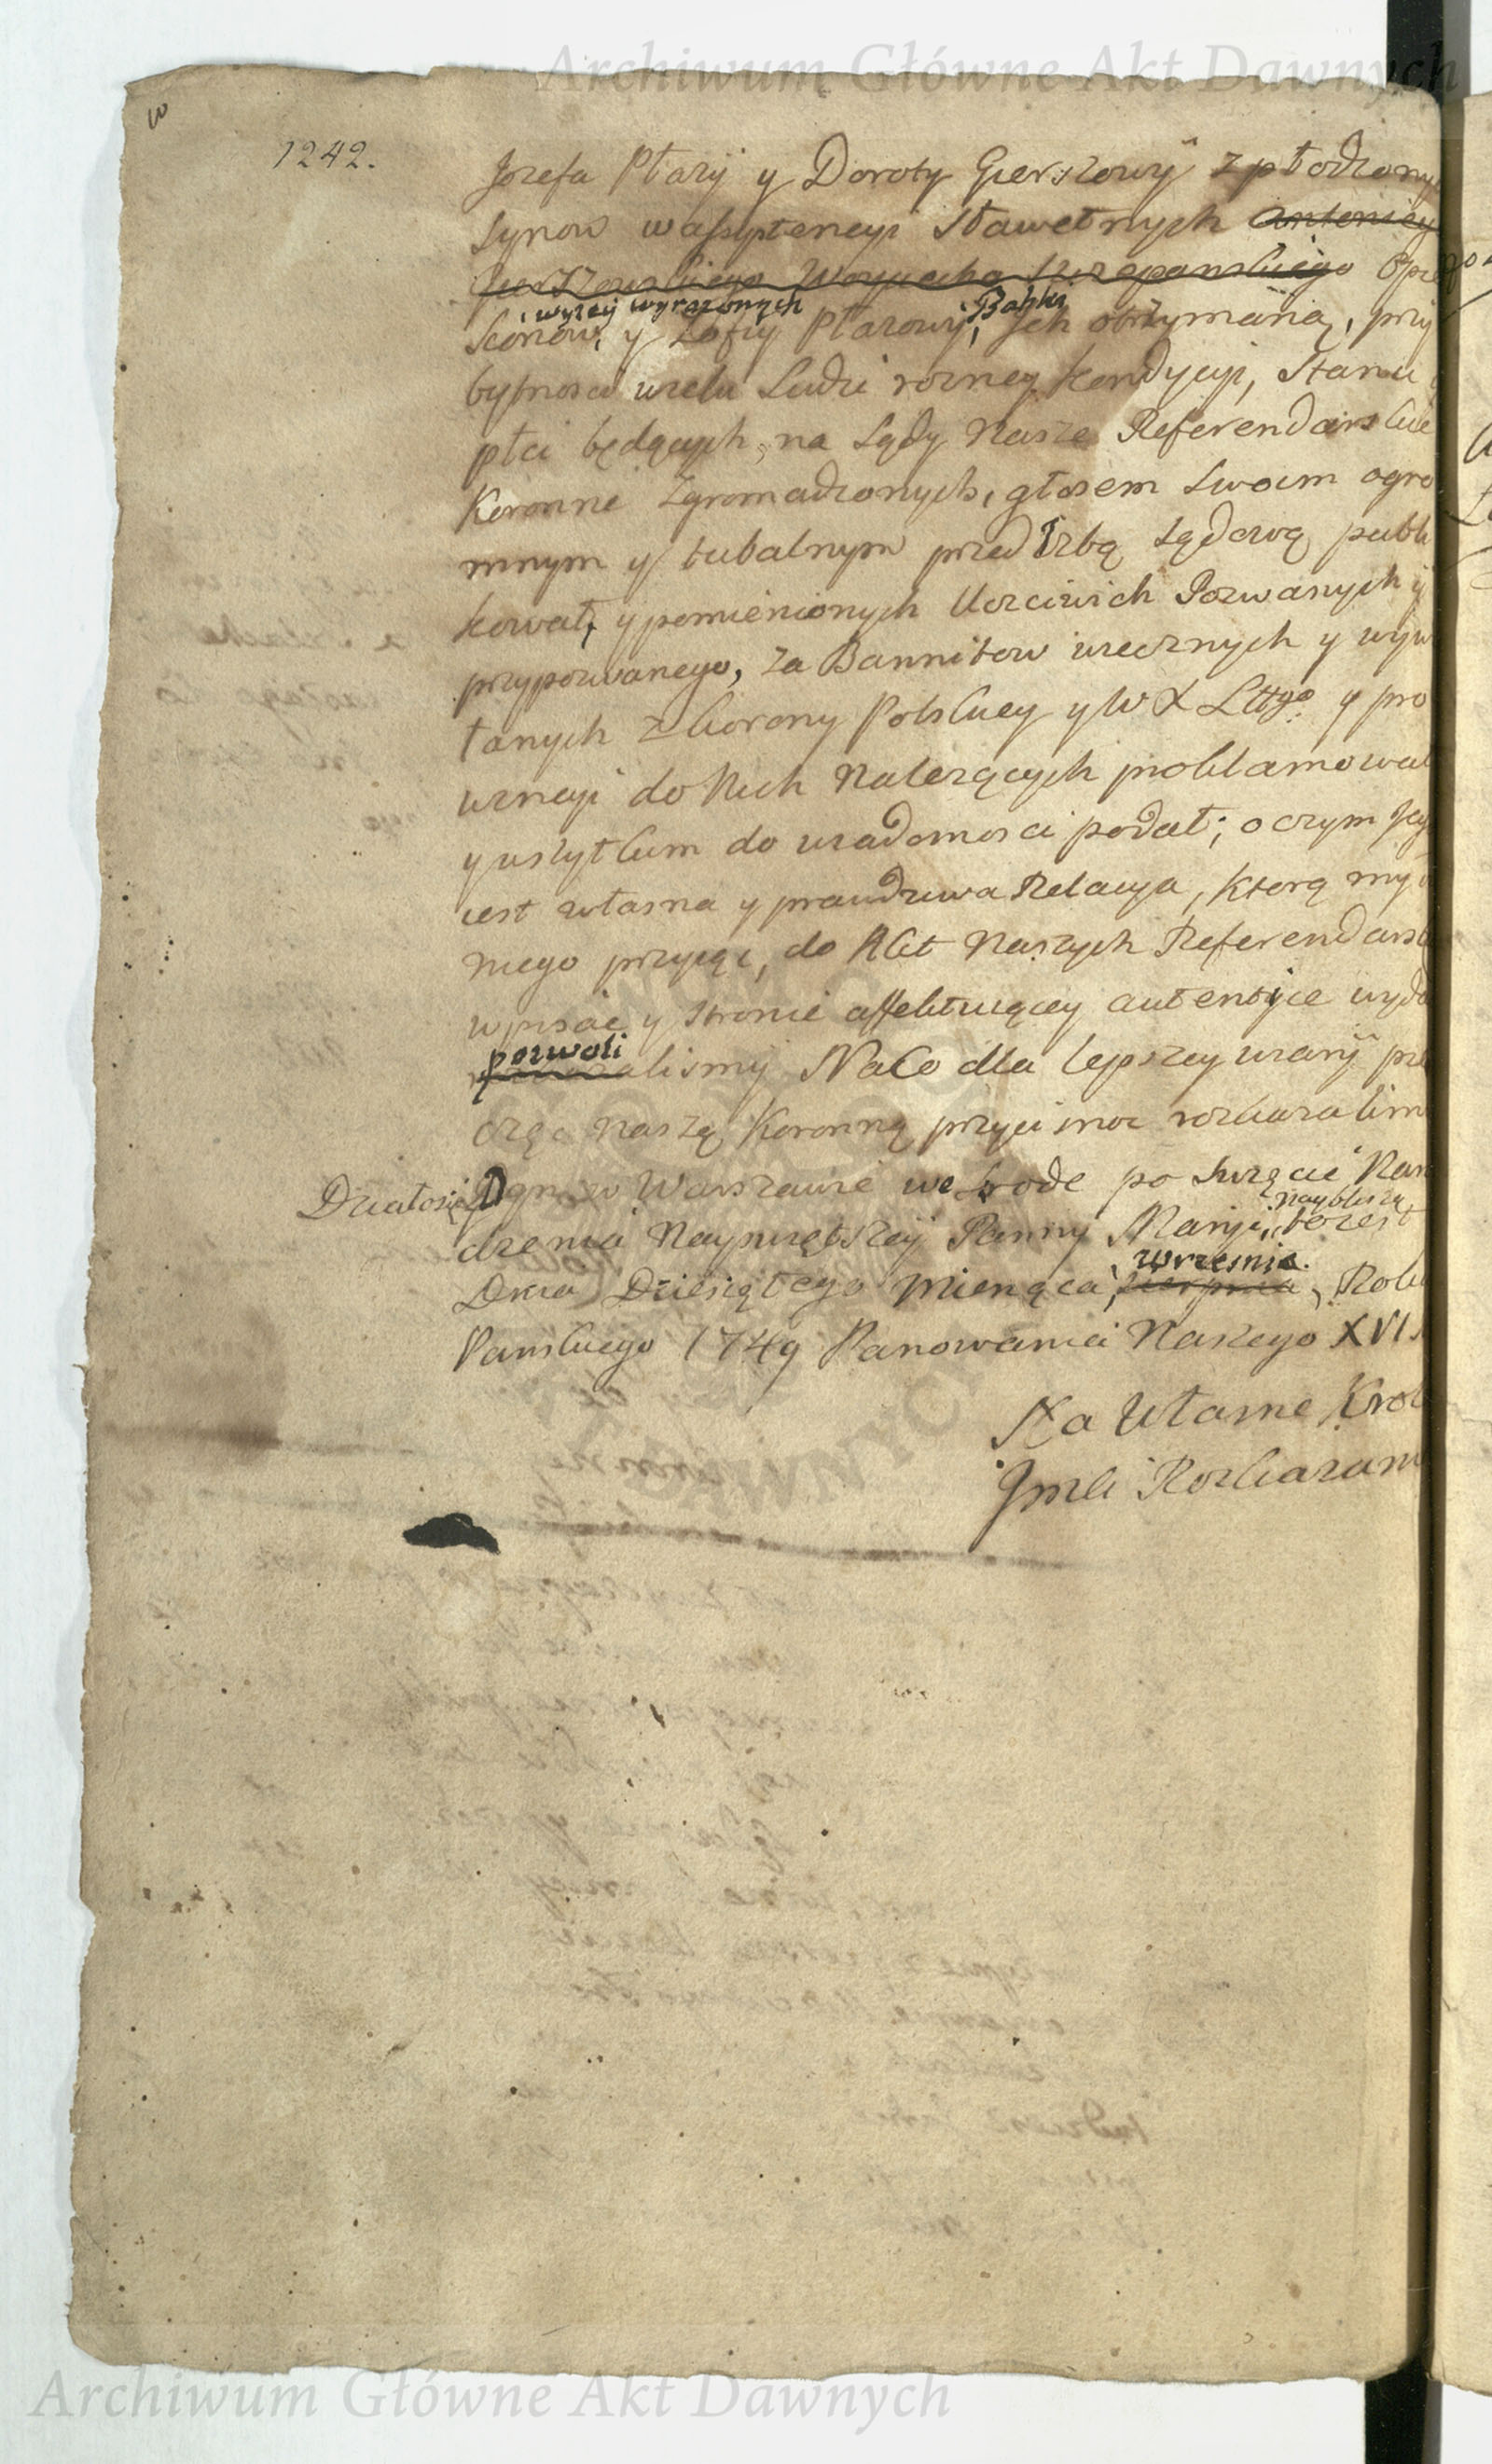 Archiwum Główne Akt Dawnych
1242.
Jozefa Ptaży y Doroty Gierszowÿ zpłodzony
Synow w assystencyi Sławetnych Antoniey
Gierszewskiego Woyciecha Szczepanskiego Opie
wyżey wyrażonych Babki
konow, y Zofiy Ptazowÿ, Ich otrzymaną, przy
bytnosci wielu Ludzi rozney Kondycyi, Stanu
płci będących, na Sądy Nasze Referendarskie
Koronne Zgromadzonych, głosem Swoim ogro
mnym y tubalnym przed Izbą Sądową publi
kował, y pomienionych Uczciwich Pozwanych y
przypozwanego, za Bannitow wiecznych y wyw
łanych z Korony Polskiey y W X Littgo y pro
wincyi do Nich Należących proklamował
y wszytkim do wiadomosci podał; o czym Jego
iest własna y prawdziwa Relacya, Ktorą my od
niego przyiąc, do Akt Naszych Referendarski
wpisac y Stronie affektuiącey autentyce wyda
pozwoli
alismy Na Co dla lepszey wiary pie
częc naszą Koronną przycisnąc rozkazalim
Działosię w Warszawie we Srodę po Swięcie Naro
naybliższą
dzenia Nayswiętszey Panny Maryi, to iest
wrzesnia.
Dnia Dziesiątego Miesiąca, Sierpnia, Roku
Panskiego 1749 Panowania Naszego XVI
Na Własne Krol
JMsci Rozkazani
Archiwum Główne Akt Dawnych